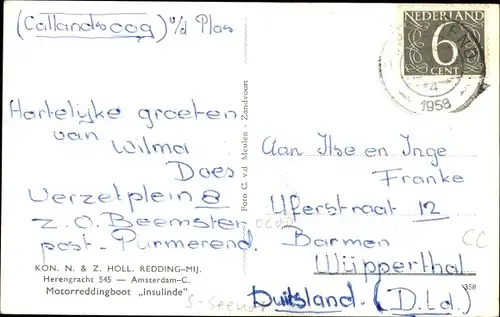 (Callandsoog) v/d Plas
NEDERLAND
6
CENT
4
1958
Hartelijke groeten
van
Wilma
Does
Verzetplein 8
Z.O. Beemster,
post-Purmerend.
Foto C. v.d. Meulen - Zandvoort
Aan Ilse en Inge
Franke
Uferstraat 12
Barmen
Wüpperthal
Duitsland. (D.Ld.)
KON. N. & Z. HOLL. REDDING-MIJ.
Herengracht 545 — Amsterdam-C.
Motorreddingboot „Insulinde”
358
CC